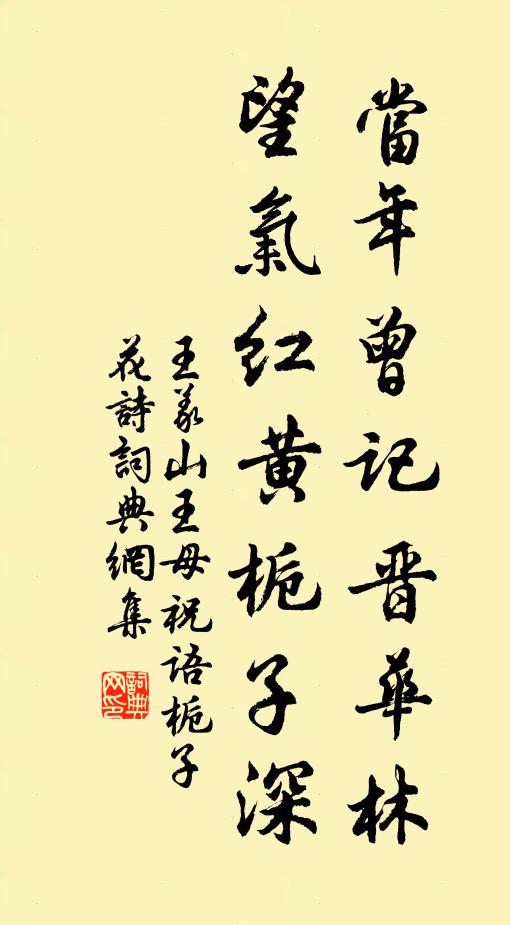 當年曾記晉華林
望氣紅黃梔子深
王義山王母祝語梔子
花詩詞典網集
詞典網印